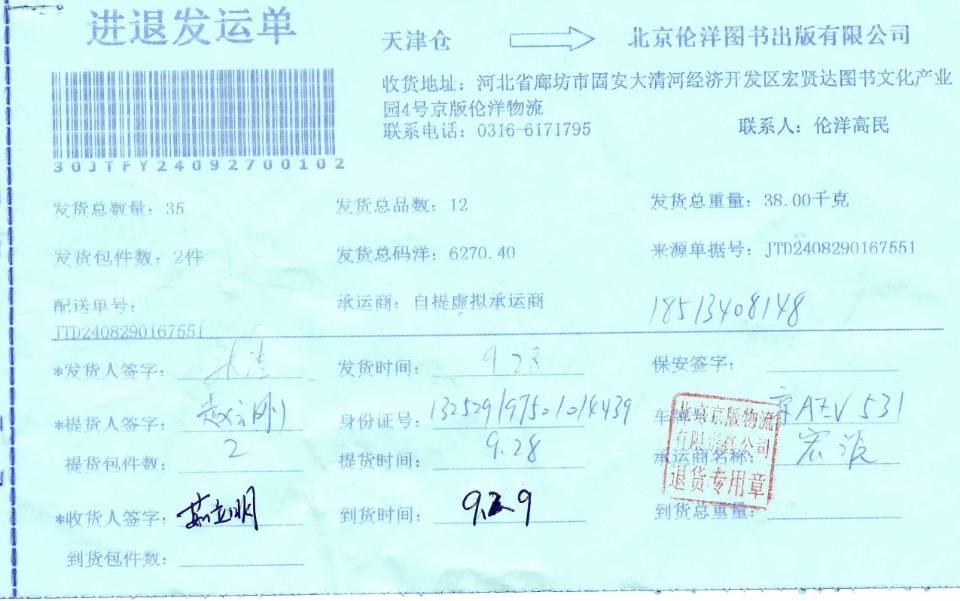 进退发运单
天津仓 北京伦洋图书出版有限公司
收货地址：河北省廊坊市固安大清河经济开发区宏贤达图书文化产业
园4号京版伦洋物流
联系电话：0316-6171795 联系人：伦洋高民
30JTFY24092700102
发货总数量：35 发货总品数：12 发货总重量：38.00千克
发货包件数：2件 发货总码洋：6270.40 来源单据号：JTD2408290167551
配送单号： 承运商：自提虚拟承运商 18513408148
JTD2408290167551
*发货人签字： 发货时间：9.28 保安签字：
*提货人签字： 身份证号： 京AZV531
提货包件数：2 提货时间：9.28 承运商名称：
北京京版物流
有限责任公司
退货专用章
*收货人签字： 到货时间： 到货总重量：
到货包件数：